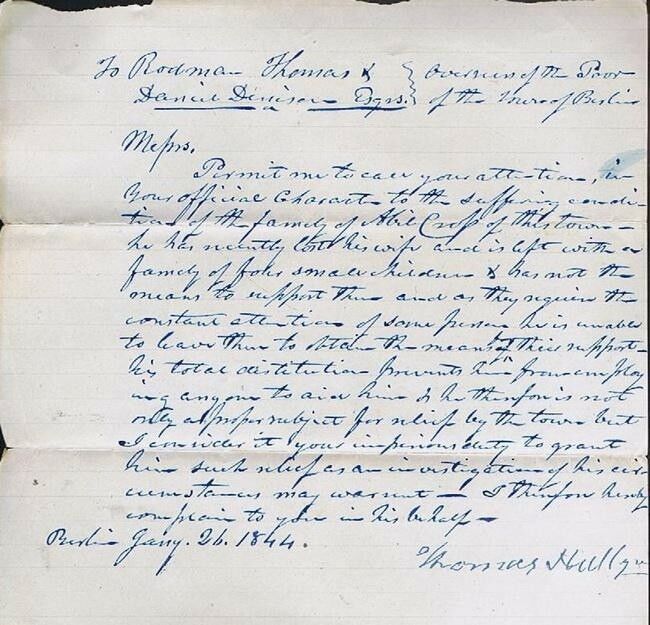 To Rodman Thomas & } Overseers of the Poor
Daniel Denison Esqrs. } of the town of Berlin
Messrs.
Permit me to call your attention, in
your official Character to the suffering condi-
tion of the family of Abil Cross of this town -
he has recently lost his wife and is left with a
family of four small children & has not the
means to support them and as they require the
constant attention of some person he is unable
to leave them to obtain the means of their support -
his total destitution prevents him from employ
ing anyone to aid him & he therefore is not
only a proper subject for relief by the town but
I consider it your imperious duty to grant
him such relief as an investigation of his cir-
cumstances may warrant - I therefore hereby
complain to you in his behalf -
Berlin Jany. 26. 1844.
Thomas Hull